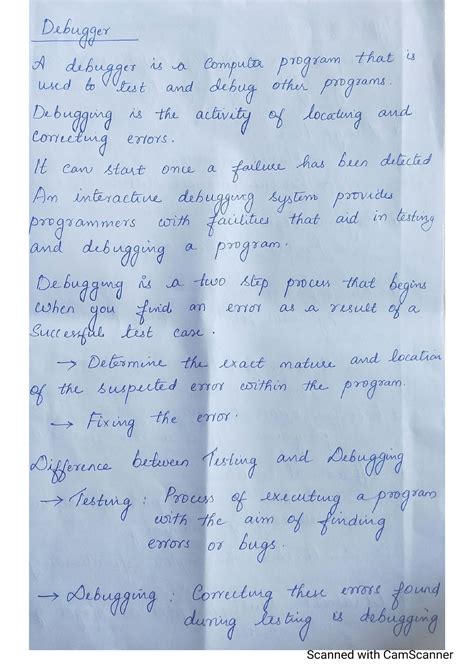 Debugger
A debugger is a computer program that is
used to test and debug other programs.
Debugging is the activity of locating and
correcting errors.
It can start once a failure has been detected
An interactive debugging system provides
programmers with facilities that aid in testing
and debugging a program.
Debugging is a two step process that begins
when you find an error as a result of a
successful test case.
→ Determine the exact nature and location
of the suspected error within the program.
→ Fixing the error.
Difference between Testing and Debugging
→ Testing : Process of executing a program
with the aim of finding
errors or bugs.
→ Debugging : Correcting these errors found
during testing is debugging
Scanned with CamScanner